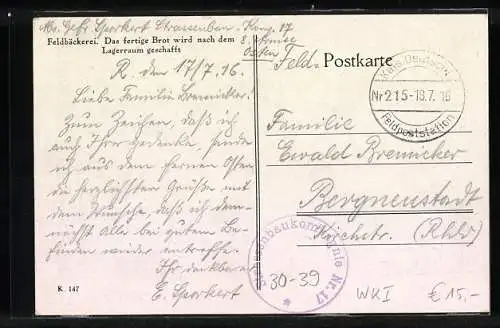 Abs. Gefr. Sporkert Strassenbau-Komp. 17
8. Armee
Osten
Feldbäckerei. Das fertige Brot wird nach dem
Lagerraum geschafft
R. den 17/7. 16.
Liebe Familie Brennicker!
Zum Zeichen, daß ich
auch Ihrer gedenke, sende
ich aus dem fernen Osten
die herzlichsten Grüße mit
dem Wunsche, daß ich dem-
nächst Alle bei gutem Be-
finden wieder antreffe.
Ihr dankbarer
E. Sporkert
K. 147
Feld- Postkarte
Kais. Deutsche
Nr 215 - 18.7. 16
Feldpoststation
Familie
Ewald Brennicker
Bergneustadt
Kirchstr. (Rhld)
Straßenbaukompanie Nr. 17
30-39
WKI €15,-